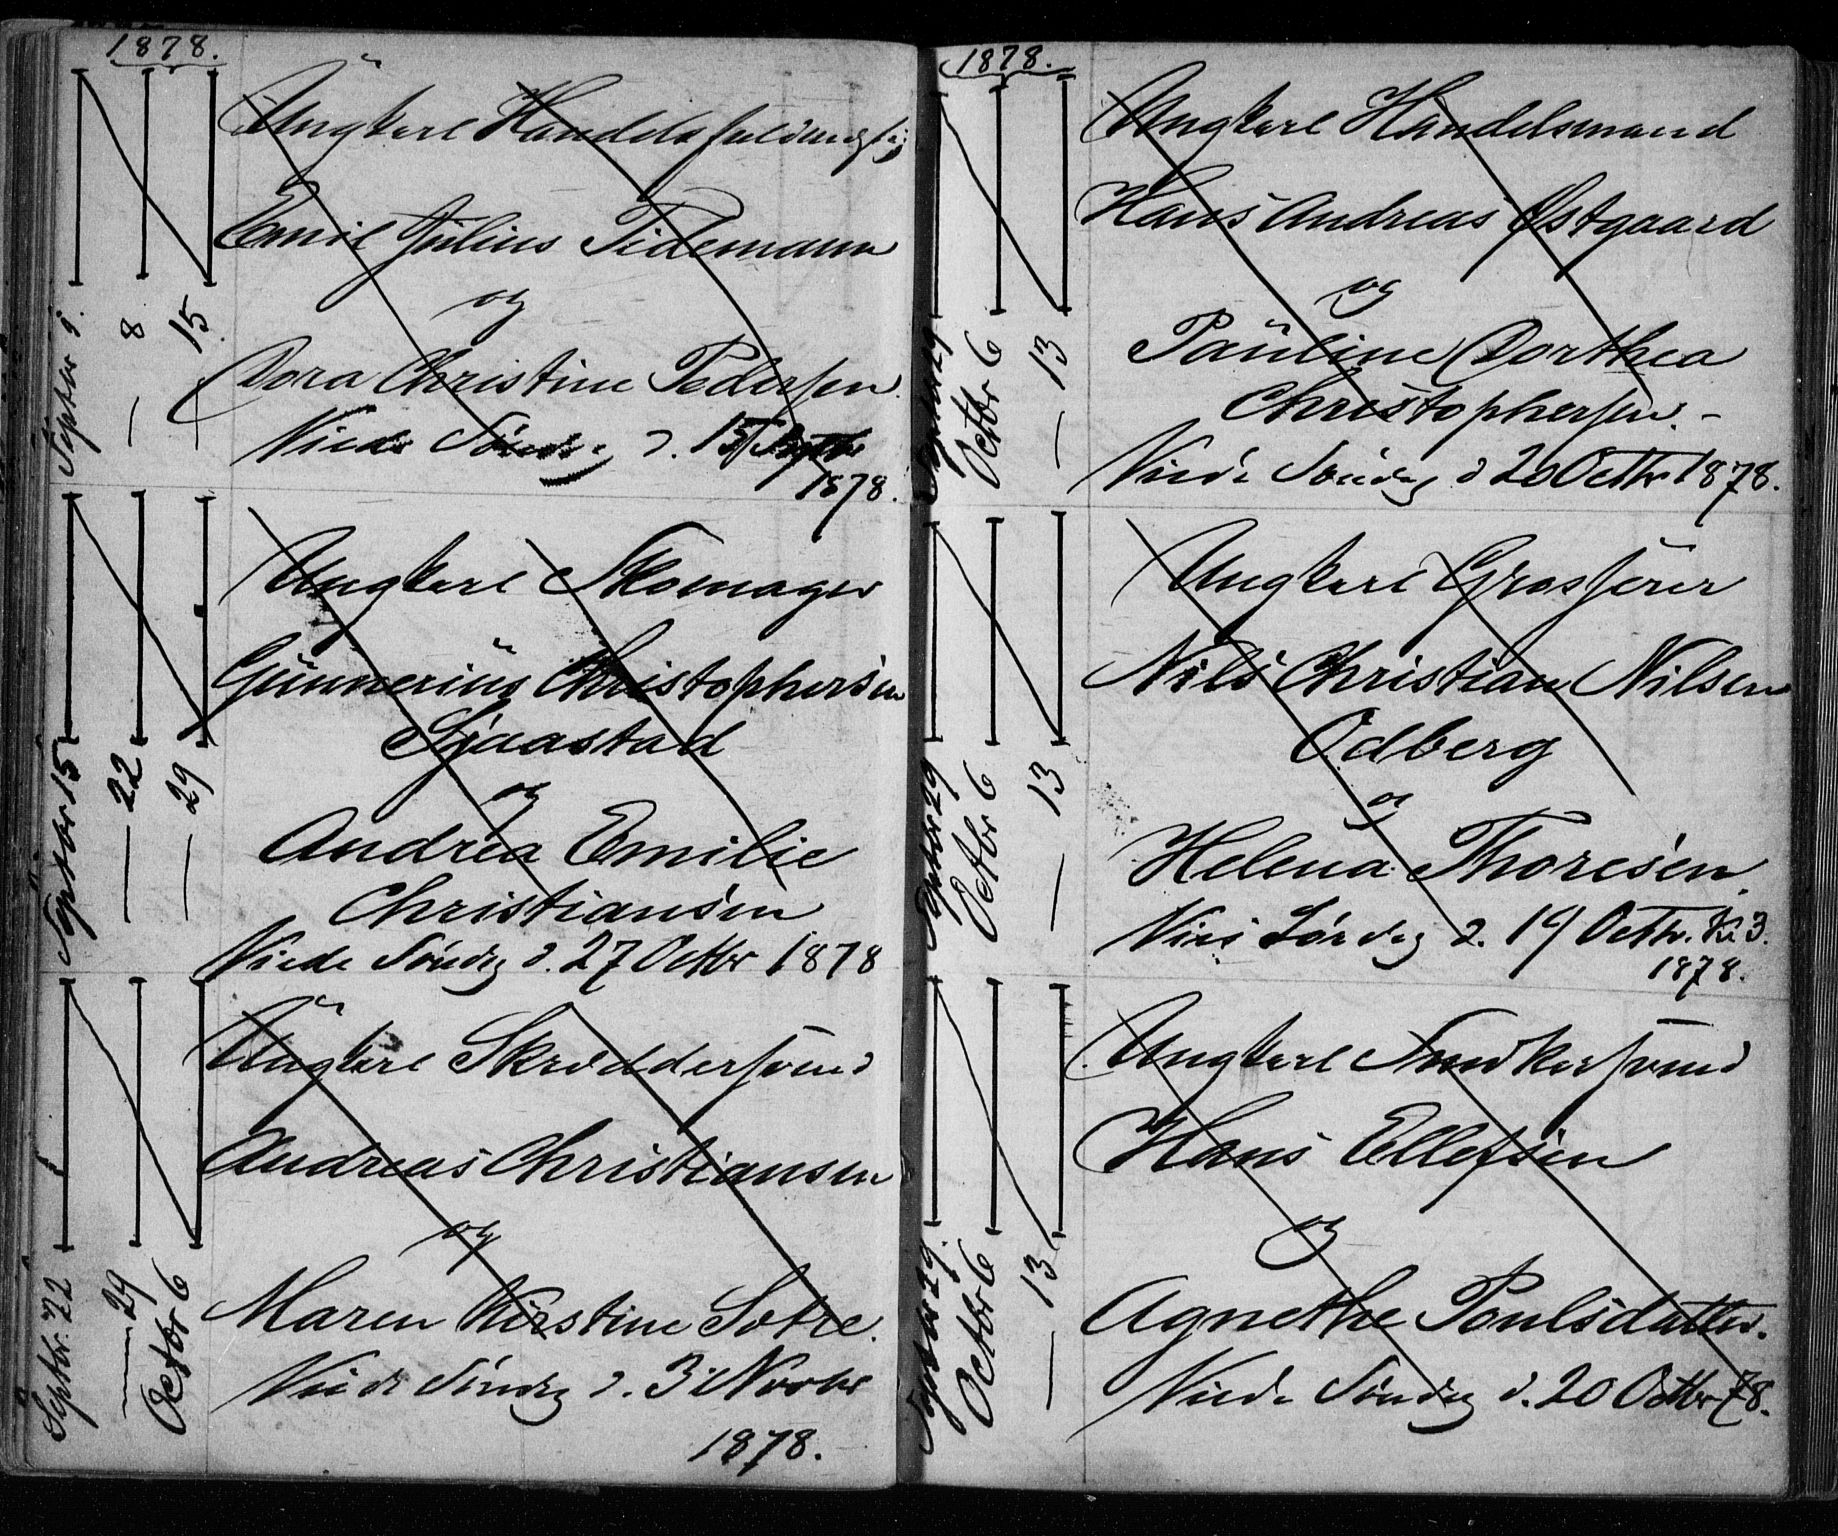 1878.
Septbr 1.
— 8
— 15
Ungkarl Handelsfuldmægtig
Emil Julius Tidemann
og
Dora Christine Pedersen
Viede Søndag d. 15 Septbr
1878.
Septbr 15
— 22
— 29
Ungkarl Skomager
Gunnerius Christophersen
Sjaastad
og
Andrea Emilie
Christiansen
Viede Søndag d. 27 Octbr 1878
Septbr. 22
— 29
Octbr 6
Ungkarl Skræddersvend
Andreas Christiansen
og
Maren Kirstine Sotre.
Viede Søndag d. 3 Novbr
1878.
1878.
Septbr 29
Octbr 6
— 13
Ungkarl Handelsmand
Hans Andreas Østgaard
og
Pauline Dorthea
Christophersen. -
Viede Søndag d 20 Octbr 1878.
Septbr 29
Octbr 6
— 13
Ungkarl Grosserer
Nils Christian Nilsen
Odberg
og
Helena Thoresen.
Viet Lørdag d. 19 Octbr. Kl 3.
1878.
Septbr 29
Octbr 6
— 13
Ungkarl Snedkersvend
Hans Ellefsen
og
Agnethe Poulsdatter.
Viede Søndag d. 20 Octbr 78.